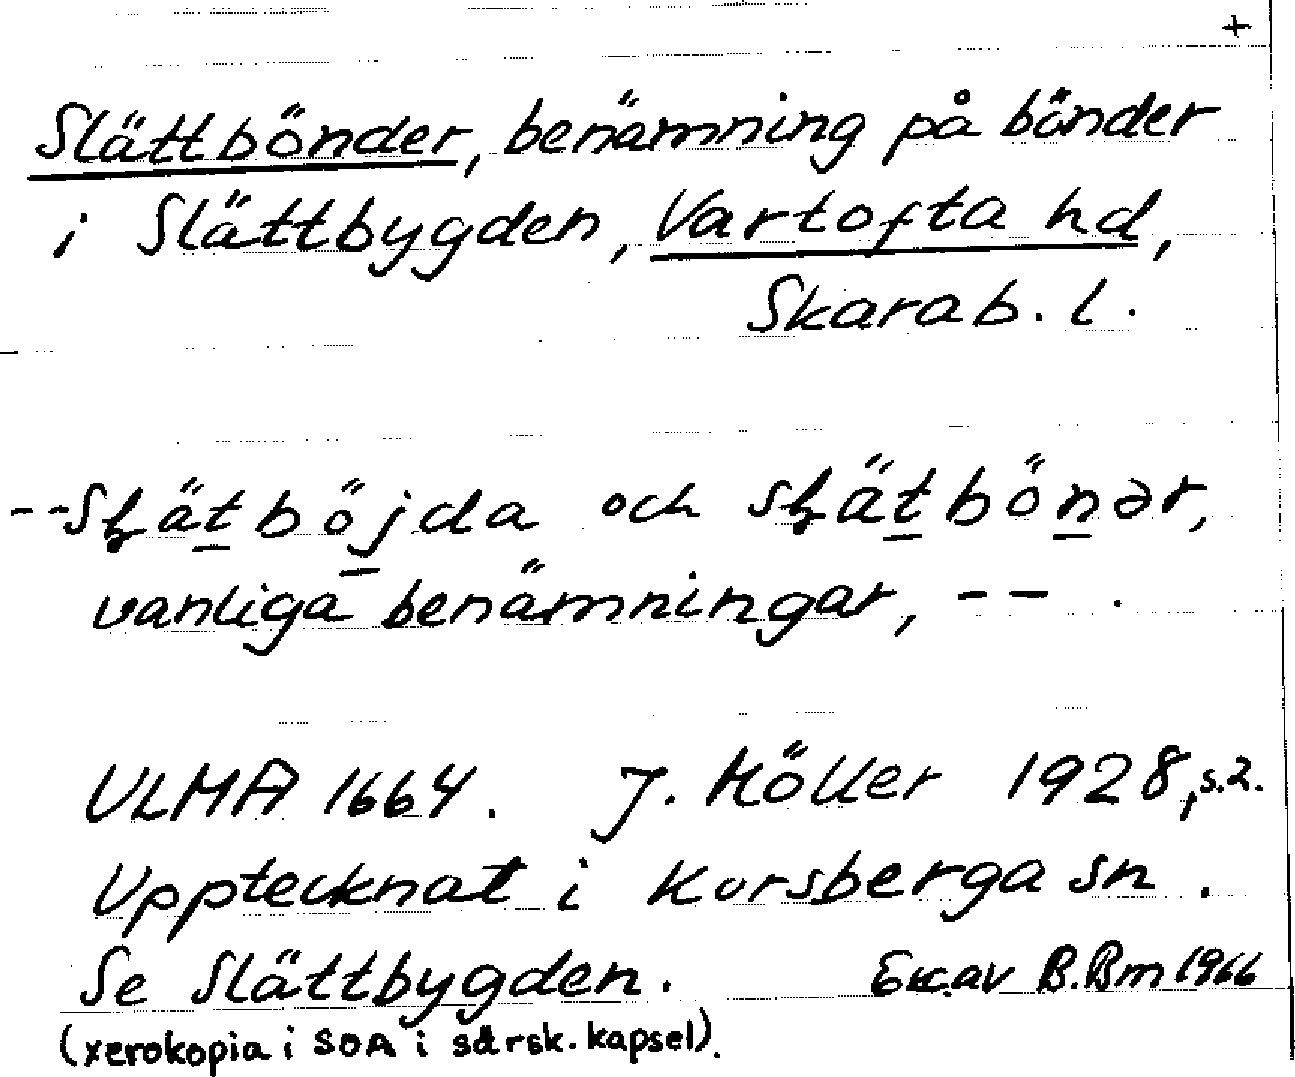 +
Slättbönder, benämning på bönder
i Slättbygden, Vartofta hd,
Skarab. l.
--Sɫät̲böj̲da och sɫät̲bön̲ər,
vanliga benämningar, -- .
ULMA 1664. J. Möller 1928, s.2.
Upptecknat i Korsberga sn.
Se Slättbygden. Exc. av B.Bm 1966
(xerokopia i SOA i särsk. kapsel).